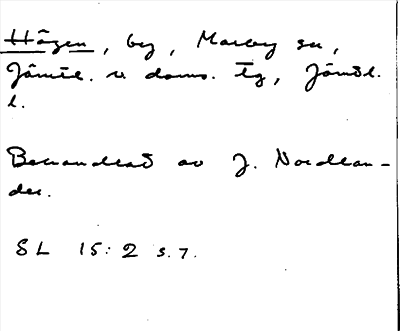 Hågen, by, Marby sn,
Jämtl. v. doms. tg, Jämtl.
l.
Behandlad av J. Nordlan-
der.
SL 15:2 s. 7.